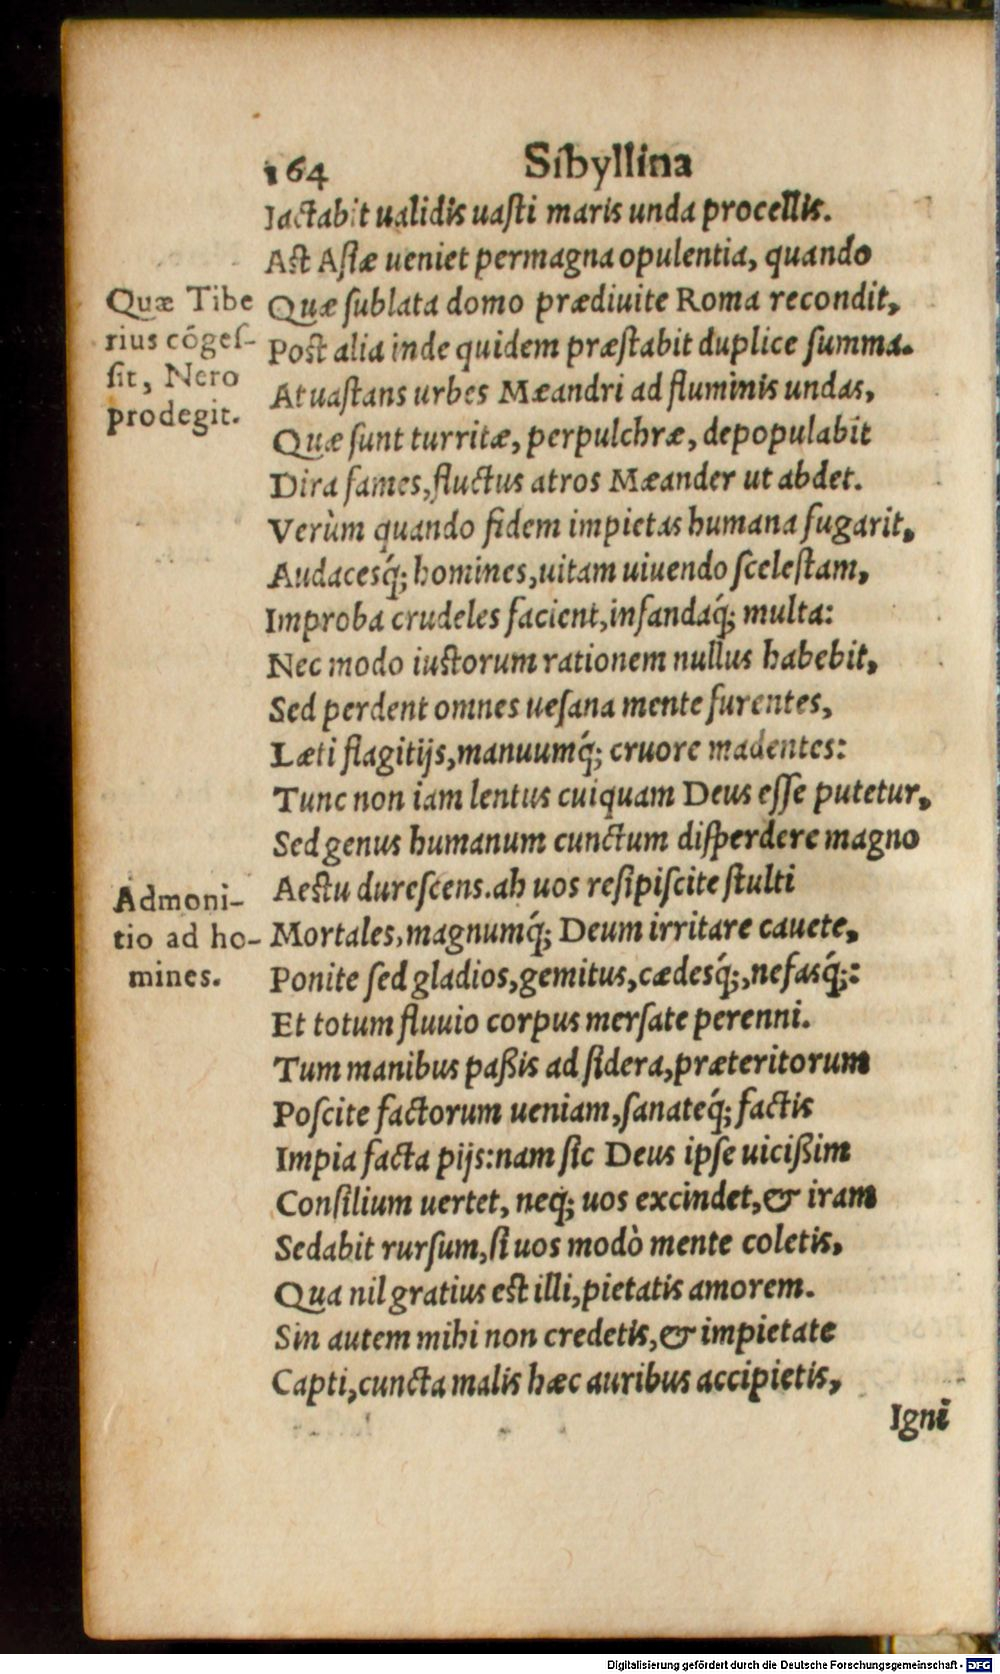 164 Sibyllina
Jactabit ualidis uaſti maris unda procellis.
Aſt Aſiæ ueniet permagna opulentia, quando
Quæ ſublata domo prædiuite Roma recondit,
Poſt alia inde quidem præſtabit duplice ſumma.
At uaſtans urbes Mæandri ad fluminis undas,
Quæ ſunt turritæ, perpulchræ, depopulabit
Dira fames, fluctus atros Mæander ut abdet.
Verùm quando fidem impietas humana fugarit,
Audacesq́; homines, uitam uiuendo ſceleſtam,
Improba crudeles facient, infandaq́; multa:
Nec modo iuſtorum rationem nullus habebit,
Sed perdent omnes ueſana mente furentes,
Læti flagitijs, manuumq́; cruore madentes:
Tunc non iam lentus cuiquam Deus eſſe putetur,
Sed genus humanum cunctum diſperdere magno
Aeſtu dureſcens. ah uos reſipiſcite ſtulti
Mortales, magnumq́; Deum irritare cauete,
Ponite ſed gladios, gemitus, cædesq́;, nefasq́;:
Et totum fluuio corpus merſate perenni.
Tum manibus paßis ad ſidera, præteritorum
Poſcite factorum ueniam, ſanateq́; factis
Impia facta pijs: nam ſic Deus ipſe uicißim
Conſilium uertet, neq́; uos excindet, & iram
Sedabit rurſum, ſi uos modò mente coletis,
Qua nil gratius eſt illi, pietatis amorem.
Sin autem mihi non credetis, & impietate
Capti, cuncta malis hæc auribus accipietis,
Igni
Quæ Tibe
rius cōgeſ-
ſit, Nero
prodegit.
Admoni-
tio ad ho-
mines.
Digitalisierung gefördert durch die Deutsche Forschungsgemeinschaft - DFG